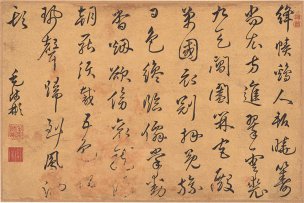 絳幘鷄人報曉籌
尚衣方進翠雲裘
九天閶闔開宮殿
萬國衣冠拜冕旒
日色纔臨仙掌動
香烟欲傍袞龍
朝罷須裁五色
珮聲歸到鳳池
頭